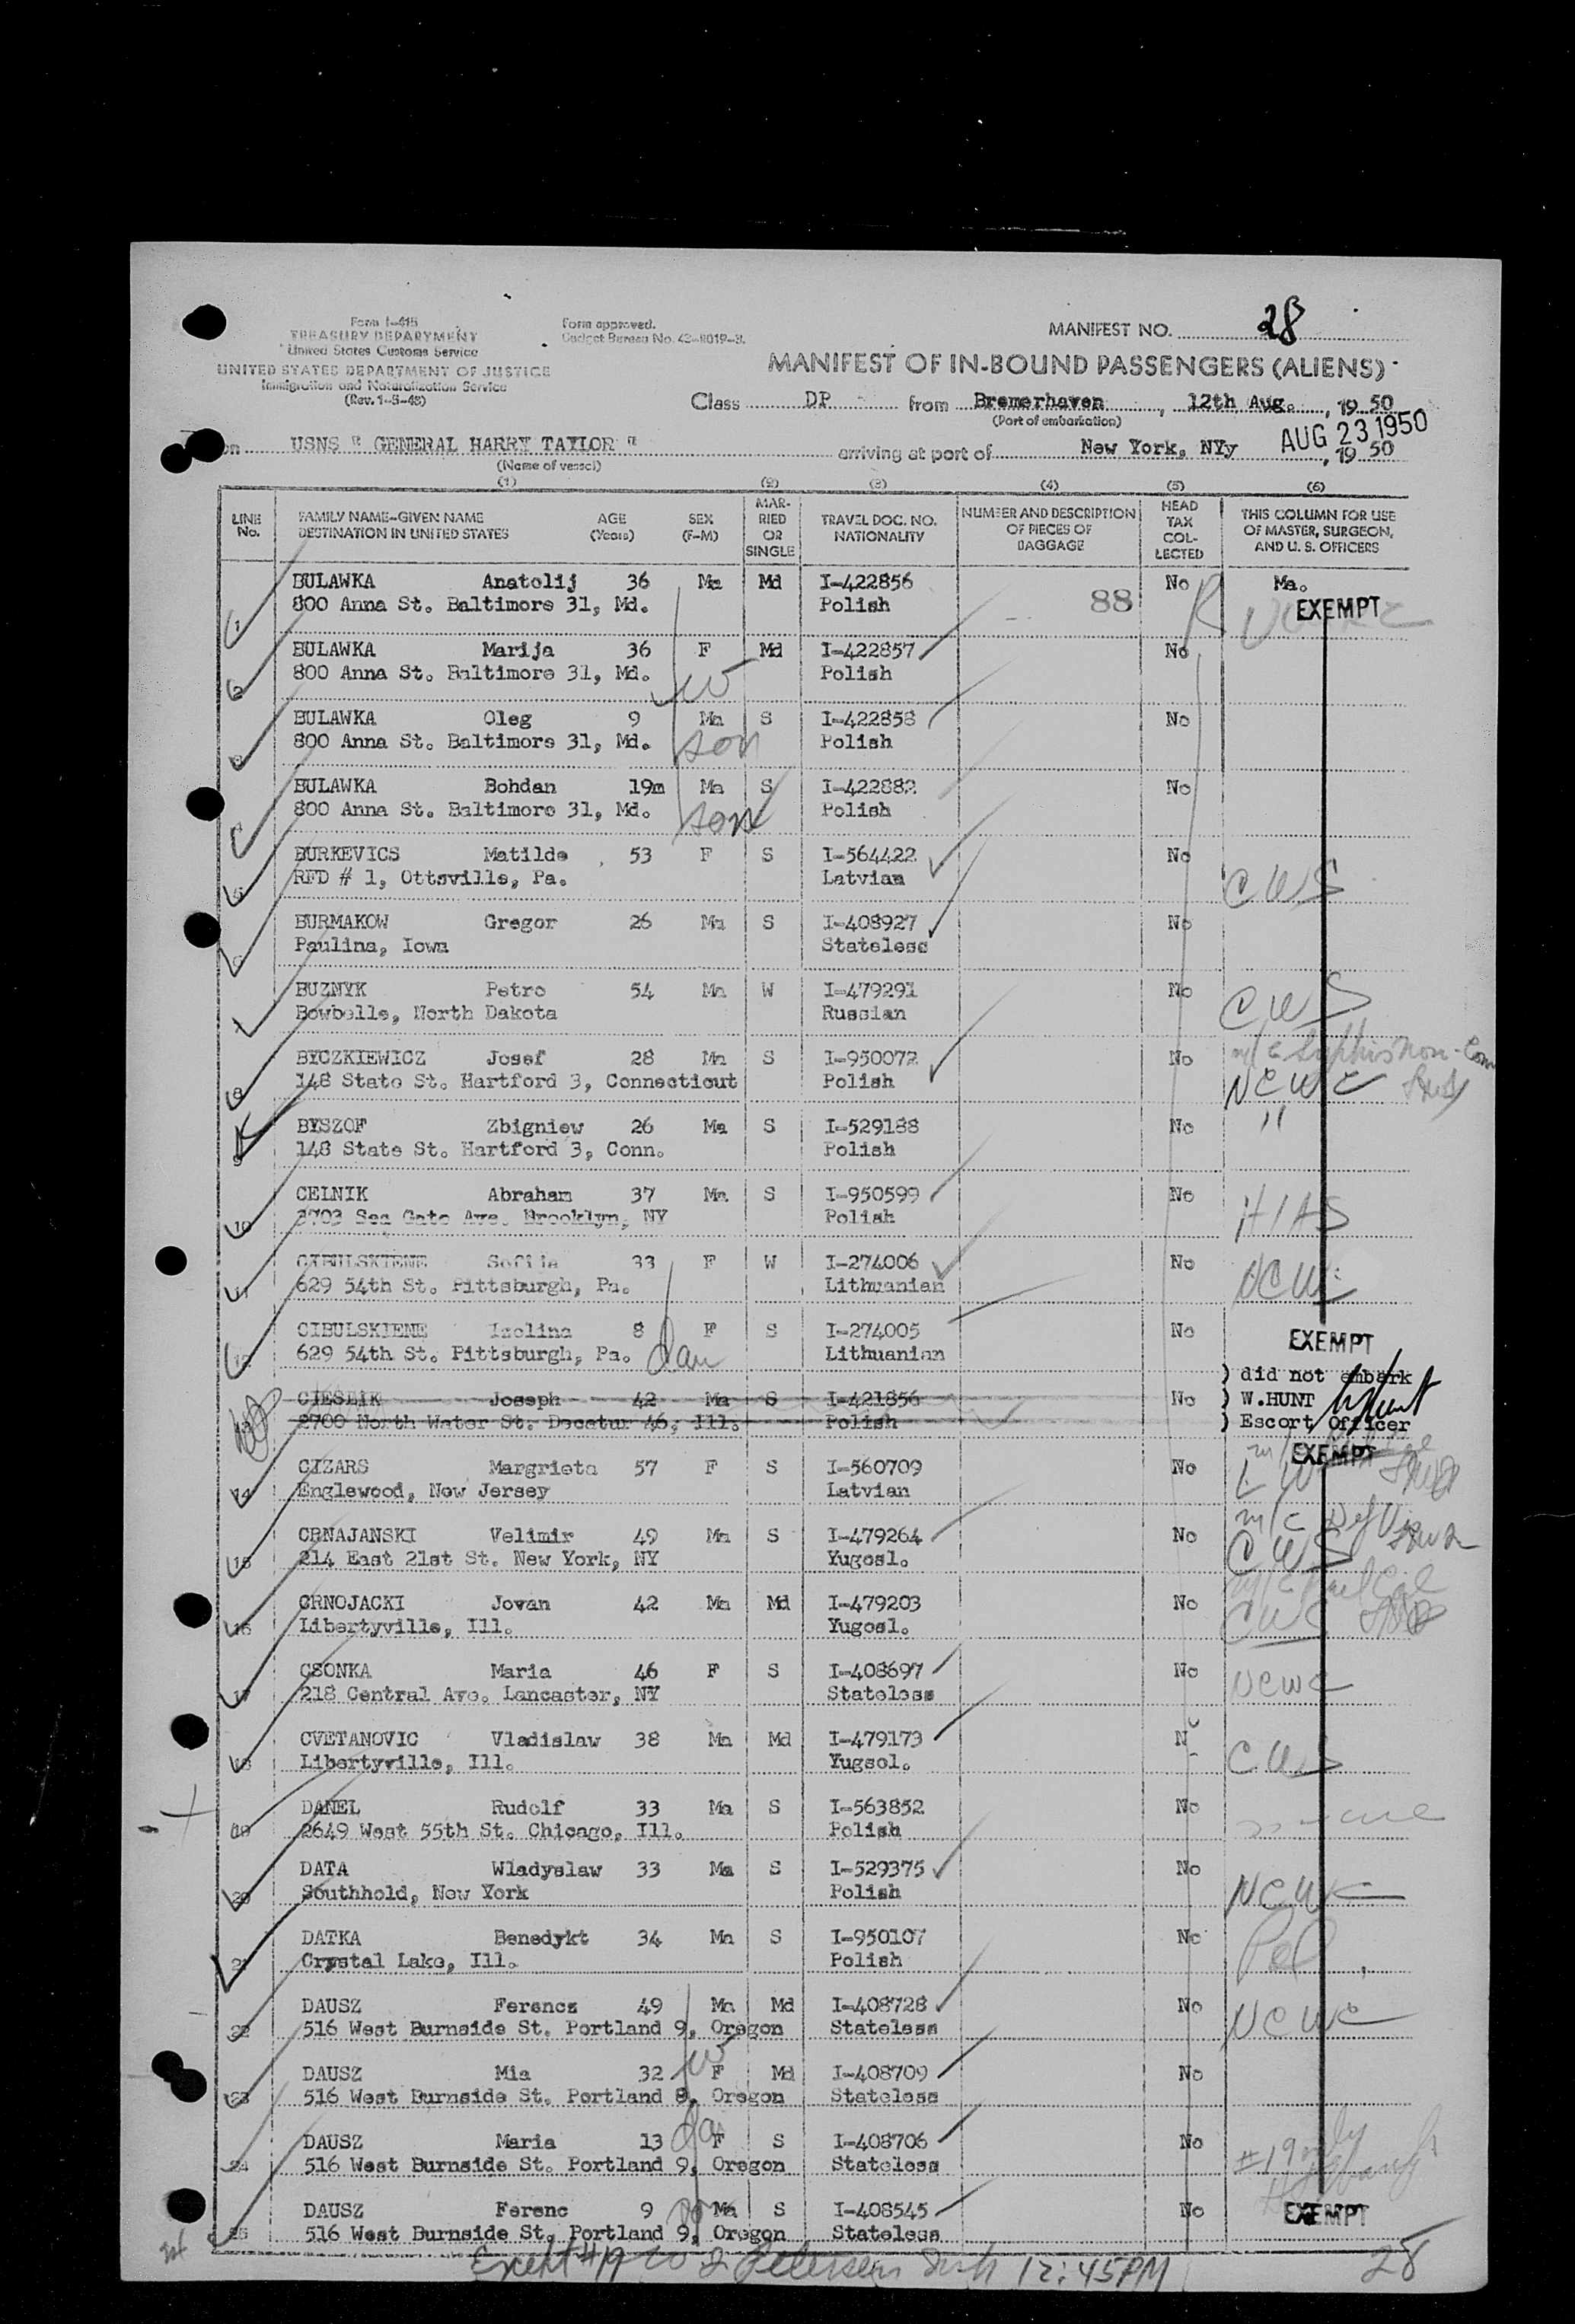 Form I-415
TREASURY DEPARTMENT
United States Customs Service
UNITED STATES DEPARTMENT OF JUSTICE
Immigration and Naturalization Service
(Rev. 1-5-48)
Form approved.
Budget Bureau No. 43-R019-3.
MANIFEST NO. 28
MANIFEST OF IN-BOUND PASSENGERS (ALIENS)
Class DP from Bremerhaven, 12th Aug., 19 50
(Port of embarkation)
AUG 23 1950
on USNS " GENERAL HARRY TAYLOR " arriving at port of New York, NYy, 19 50
(Name of vessel)
(1) (2) (3) (4) (5) (6)
LINE No. FAMILY NAME-GIVEN NAME DESTINATION IN UNITED STATES AGE (Years) SEX (F-M) MARRIED OR SINGLE TRAVEL DOC. NO. NATIONALITY NUMBER AND DESCRIPTION OF PIECES OF BAGGAGE HEAD TAX COLLECTED THIS COLUMN FOR USE OF MASTER, SURGEON, AND U. S. OFFICERS
BULAWKA Anatolij 36 Ma Md I-422856 No Ma.
1 800 Anna St. Baltimore 31, Md. Polish 88 EXEMPT
BULAWKA Marija 36 F Md I-422857 No
2 800 Anna St. Baltimore 31, Md. W Polish
BULAWKA Oleg 9 Ma S I-422858 No
3 800 Anna St. Baltimore 31, Md. son Polish
BULAWKA Bohdan 19m Ma S I-422882 No
800 Anna St. Baltimore 31, Md. son Polish
BURKEVICS Matilde 53 F S I-564422 No
5 RFD # 1, Ottsville, Pa. Latvian CWS
BURMAKOW Gregor 26 Ma S I-408927 No
6 Paulina, Iowa Stateless
BUZNYK Petro 54 Ma W I-479291 No
7 Bowbells, North Dakota Russian CWS
BYCZKIEWICZ Josef 28 Ma S I-950072 No
8 148 State St. Hartford 3, Connecticut Polish NCWC
BYSZOF Zbigniew 26 Ma S I-529188 No "
9 148 State St. Hartford 3, Conn. Polish
CELNIK Abraham 37 Ma S I-950599 No
10 3703 Sea Gate Ave. Brooklyn, NY Polish HIAS
CIBULSKIENE Sofija 33 F W I-274006 No
11 629 54th St. Pittsburgh, Pa. Lithuanian NCWC
CIBULSKIENE Izolina 8 F S I-274005 No EXEMPT
12 629 54th St. Pittsburgh, Pa. dau Lithuanian
) did not embark
CIESLIK Joseph 42 Ma S I-421856 No ) W.HUNT
2700 North Water St. Decatur 46, Ill. Polish ) Escort Officer
EXEMPT
CIZARS Margrieta 57 F S I-560709 No
14 Englewood, New Jersey Latvian
CRNAJANSKI Velimir 49 Ma S I-479264 No
15 214 East 21st St. New York, NY Yugosl. CWS
CRNOJACKI Jovan 42 Ma Md I-479203 No
16 Libertyville, Ill. Yugosl. CWS
CSONKA Maria 46 F S I-408697 No
17 218 Central Ave. Lancaster, NY Stateless NCWC
CVETANOVIC Vladislaw 38 Ma Md I-479173 N
18 Libertyville, Ill. Yugsol. CWS
DANEL Rudolf 33 Ma S I-563852 No
19 2649 West 55th St. Chicago, Ill. Polish
DATA Wladyslaw 33 Ma S I-529375 No
20 Southhold, New York Polish NCWC
DATKA Benedykt 34 Ma S I-950107 No
21 Crystal Lake, Ill. Polish Pol
DAUSZ Ferencz 49 Ma Md I-408728 No
22 516 West Burnside St. Portland 9, Oregon Stateless NCWC
DAUSZ Mia 32 W F Md I-408709 No
23 516 West Burnside St. Portland 8, Oregon Stateless
DAUSZ Maria 13 da F S I-408706 No
24 516 West Burnside St. Portland 9, Oregon Stateless #19 only
DAUSZ Ferenc 9 son Ma S I-408545 No EXEMPT
25 516 West Burnside St. Portland 9, Oregon Stateless
12:45PM 28